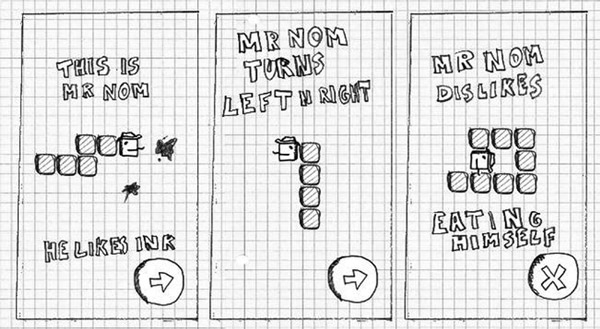 THIS IS
MR NOM
HE LIKES INK
MR NOM
TURNS
LEFT N RIGHT
MR NOM
DISLIKES
EATING
HIMSELF